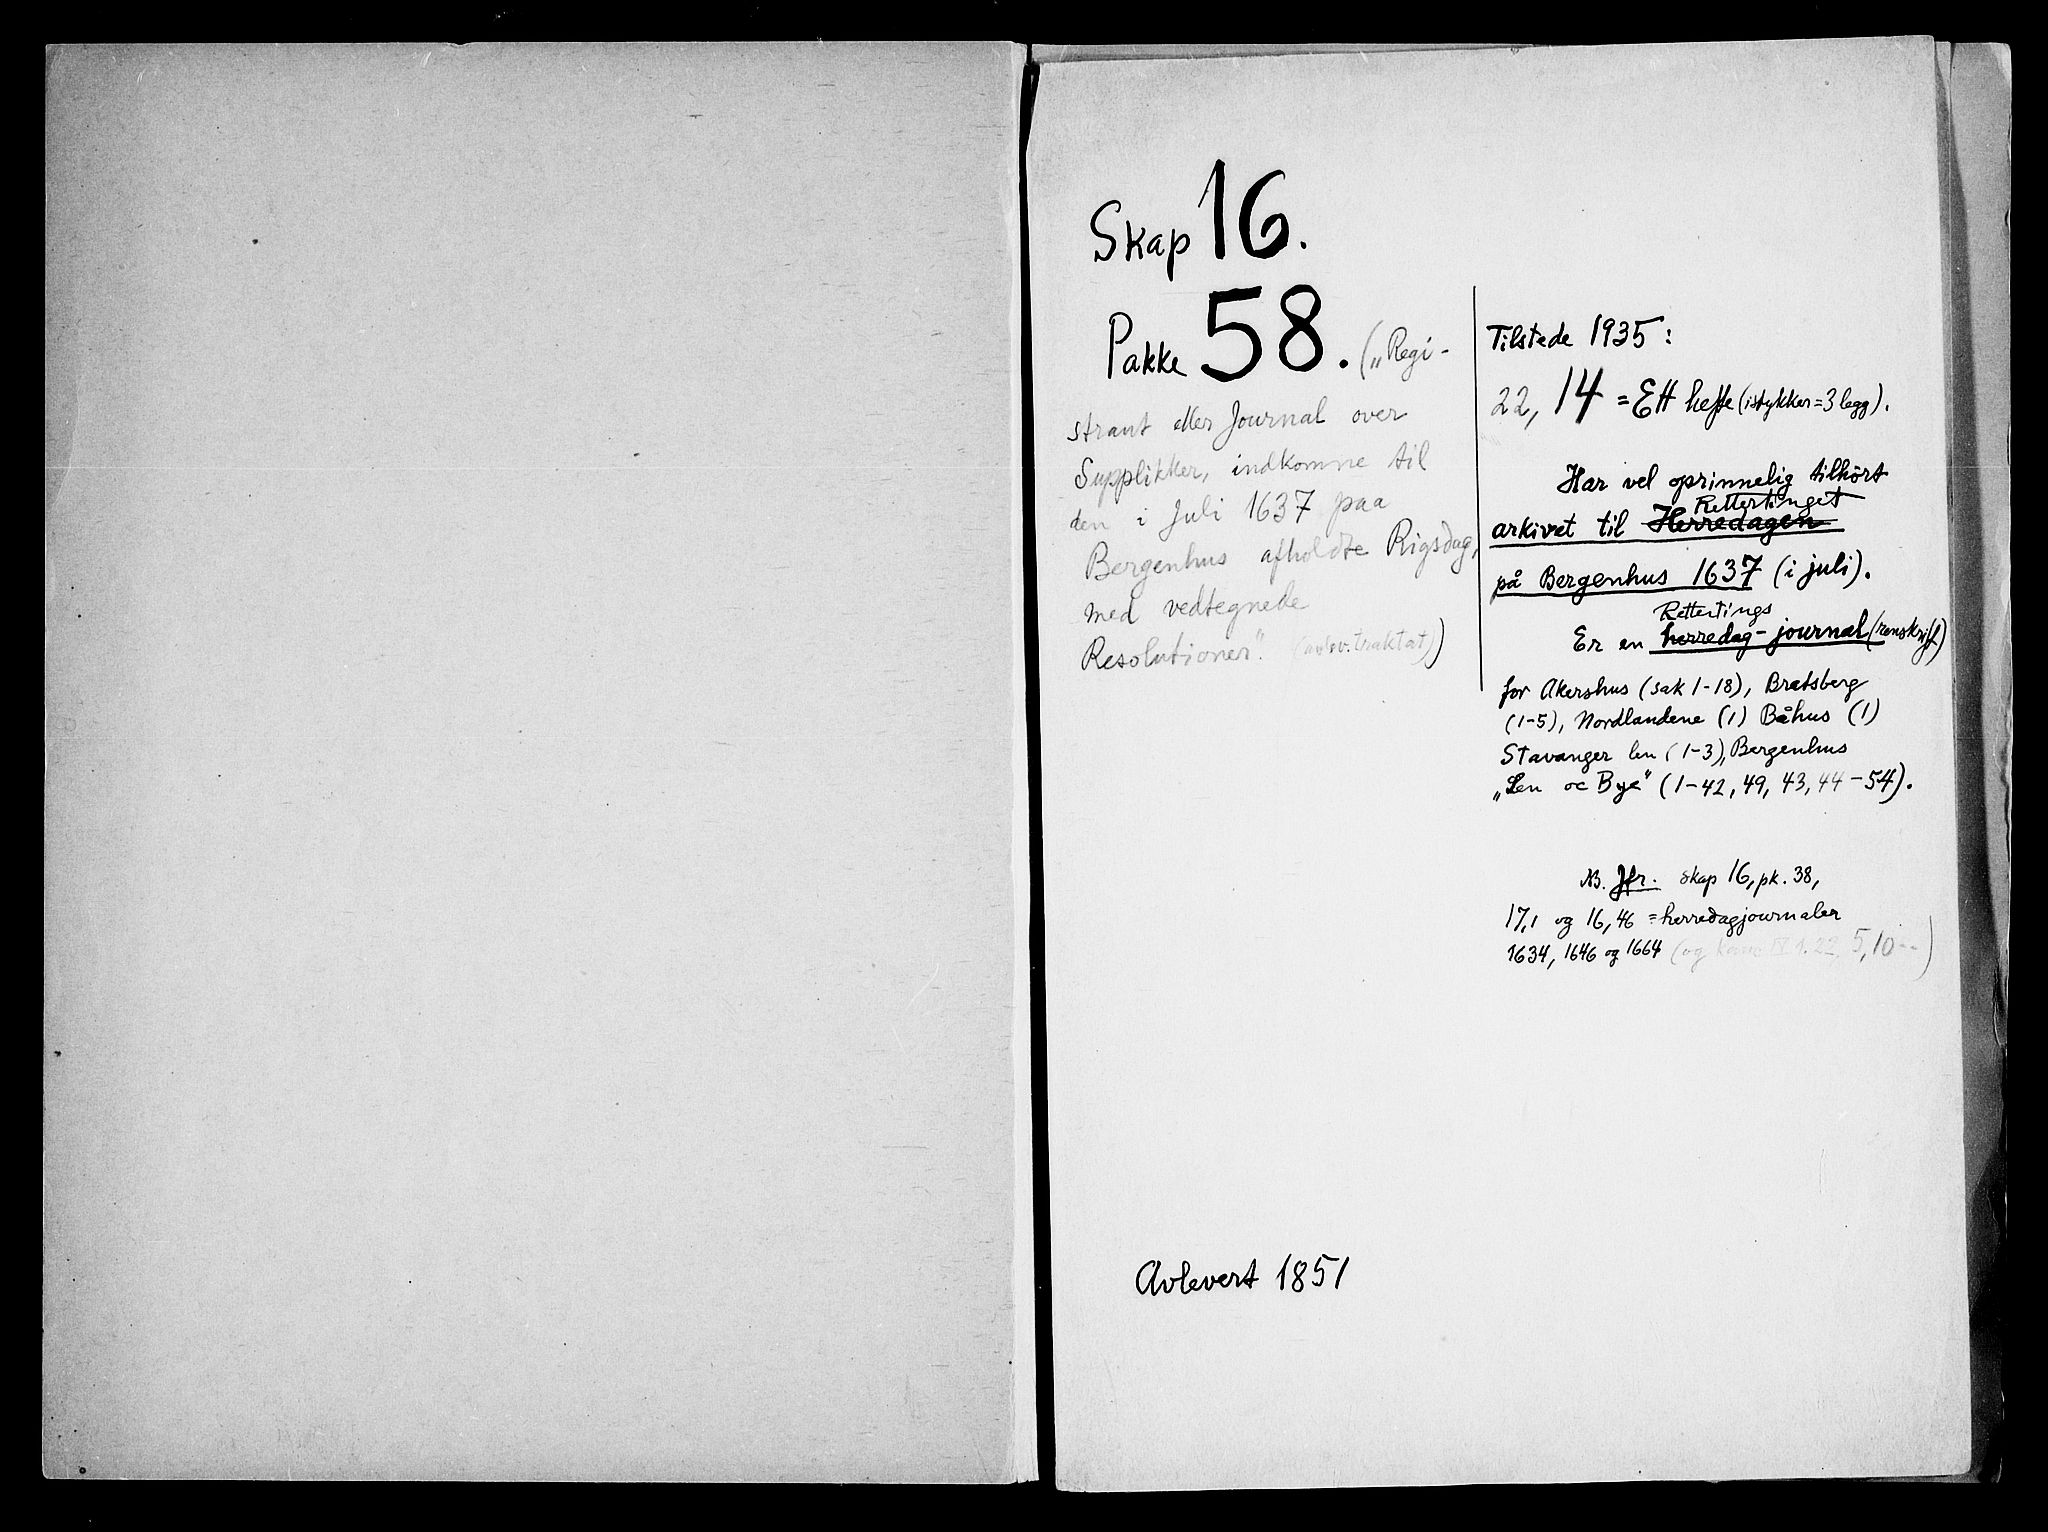 Skap 16.
Pakke 58. („Regi-
strant eller Journal over
Supplikker, indkomne til
den i Juli 1637 paa
Bergenhus afholdte Rigsdag,
med vedtegnede
Resolutioner.“ )
Tilstede 1935:
22, 14 = Ett hefte (i stykker = 3 legg).
Har vel oprinnelig tilhørt
Rettertinget
arkivet til Herredagen
på Bergenhus 1637 (i juli).
Rettertings
Er en herredag-journal (renskrift)
for Akershus (sak 1-18), Bratsberg
(1-5), Nordlandene (1) Båhus (1)
Stavanger len (1-3), Bergenhus
„Len oc Bye“ (1-42, 49, 43, 44-54).
NB. Jfr. skap 16, pk. 38,
17,1 og 16,46 = herredagjournaler
1634, 1646 og 1664 (og 1. 22, 5,10 --)
Avlevert 1851